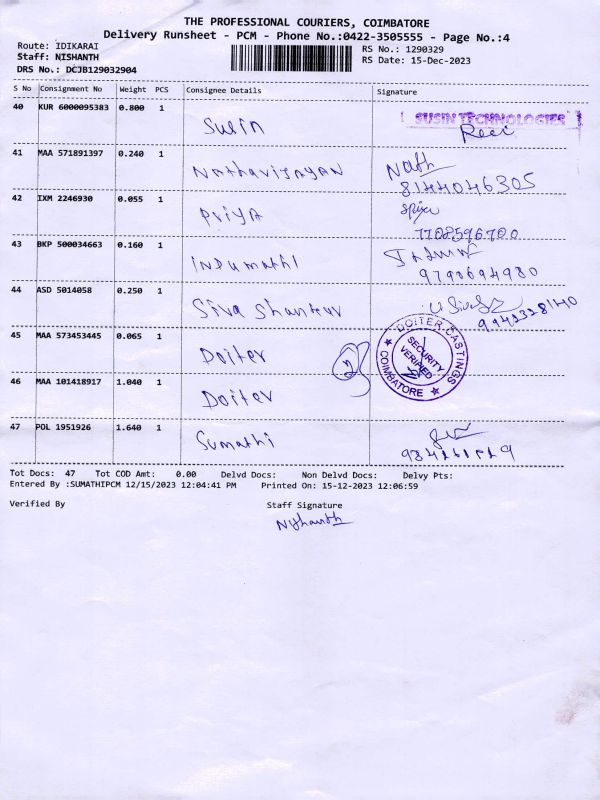 THE PROFESSIONAL COURIERS, COIMBATORE
Delivery Runsheet - PCM - Phone No.:0422-3505555 - Page No.:4
Route: IDIKARAI RS No.: 1290329
Staff: NISHANTH RS Date: 15-Dec-2023
DRS No.: DCJB129032904
S No Consignment No Weight PCS Consignee Details Signature
40 KUR 6000095383 0.800 1 Susin SUSIN TECHNOLOGIES
41 MAA 571891397 0.240 1 Nathavijayan Nath
8144046305
42 IXM 2246930 0.055 1 Priya
7708596700
43 BKP 500034663 0.160 1 Indumathi
9798694980
44 ASD 5014058 0.250 1 Siva Shankar
45 MAA 573453445 0.065 1 Doiter DOITER CASTINGS
SECURITY VERIFIED
COIMBATORE
46 MAA 101418917 1.040 1 Doiter
47 POL 1951926 1.640 1 Sumathi
Tot Docs: 47 Tot COD Amt: 0.00 Delvd Docs: Non Delvd Docs: Delvy Pts:
Entered By :SUMATHIPCM 12/15/2023 12:04:41 PM Printed On: 15-12-2023 12:06:59
Verified By Staff Signature
Nishanth